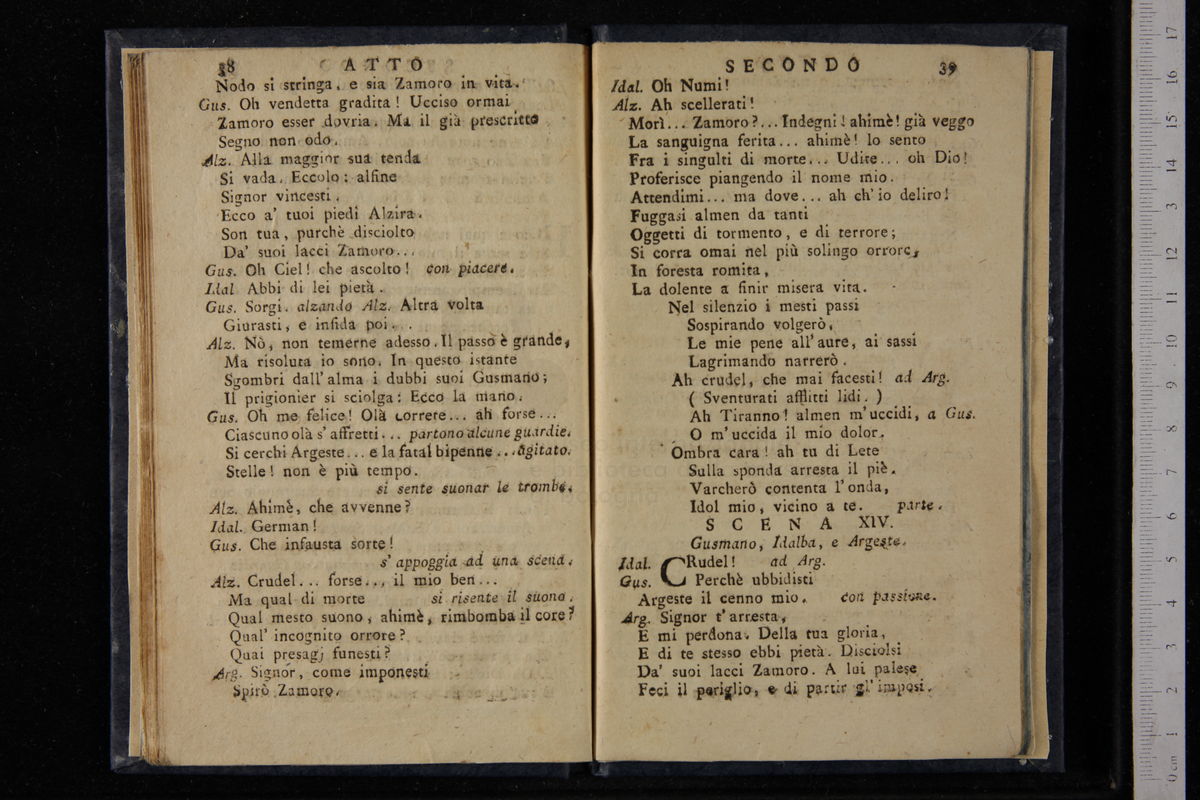 38 ATTO
Nodo si stringa, e sia Zamoro in vita.
Gus. Oh vendetta gradita! Ucciso ormai
Zamoro esser dovria. Ma il già prescritto
Segno non odo.
Alz. Alla maggior sua tenda
Si vada. Eccolo: alfine
Signor vincesti.
Ecco a' tuoi piedi Alzira.
Son tua, purchè disciolto
Da' suoi lacci Zamoro...
Gus. Oh Ciel! che ascolto! con piacere.
Idal Abbi di lei pietà.
Gus. Sorgi. alzando Alz. Altra volta
Giurasti, e infida poi...
Alz. Nò, non temerne adesso. Il passo è grande,
Ma risoluta io sono. In questo istante
Sgombri dall' alma i dubbi suoi Gusmano;
Il prigionier si sciolga: Ecco la mano.
Gus. Oh me felice! Olà correte... ah forse...
Ciascuno olà s' affretti... partono alcune guardie.
Si cerchi Argeste... e la fatal bipenne... agitato.
Stelle! non è più tempo.
si sente suonar le trombe.
Alz. Ahimè, che avvenne?
Idal. German!
Gus. Che infausta sorte!
s' appoggia ad una scena.
Alz. Crudel... forse... il mio ben...
Ma qual di morte si risente il suono.
Qual mesto suono, ahimè, rimbomba il core?
Qual' incognito orrore?
Quai presagj funesti?
Arg. Signor, come imponesti
Spirò Zamoro.
SECONDO 39
Idal. Oh Numi!
Alz. Ah scellerati!
Morì... Zamoro?... Indegni! ahimè! già veggo
La sanguigna ferita... ahimè! lo sento
Fra i singulti di morte... Udite... oh Dio!
Proferisce piangendo il nome mio.
Attendimi... ma dove... ah ch' io deliro!
Fuggasi almen da tanti
Oggetti di tormento, e di terrore;
Si corra omai nel più solingo orrore,
In foresta romita,
La dolente a finir misera vita.
Nel silenzio i mesti passi
Sospirando volgerò,
Le mie pene all' aure, ai sassi
Lagrimando narrerò.
Ah crudel, che mai facesti! ad Arg.
( Sventurati afflitti lidi. )
Ah Tiranno! almen m' uccidi, a Gus.
O m' uccida il mio dolor.
Ombra cara! ah tu di Lete
Sulla sponda arresta il piè.
Varcherò contenta l' onda,
Idol mio, vicino a te. parte.
SCENA XIV.
Gusmano, Idalba, e Argeste.
Idal. CRudel! ad Arg.
Gus. Perchè ubbidisti
Argeste il cenno mio. con passione.
Arg. Signor t' arresta,
E mi perdona. Della tua gloria,
E di te stesso ebbi pietà. Disciolsi
Da' suoi lacci Zamoro. A lui palese
Feci il periglio, e di partir gl' imposi.